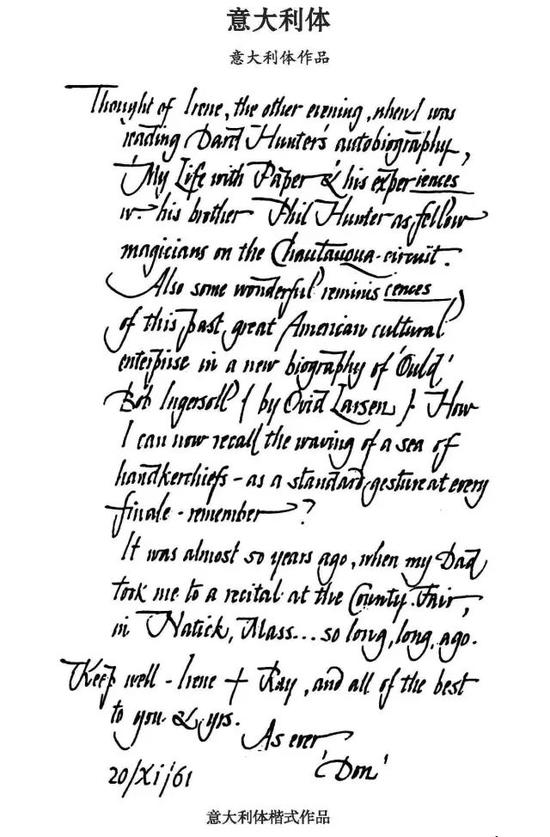 意大利体
意大利体作品
Thought of Irene, the other evening, when I was
reading Dard Hunter's autobiography,
'My Life with Paper' & his experiences
w. his brother Phil Hunter as fellow
magicians on the Chautauqua-circuit.
Also some wonderful reminiscences,
of this past, great American cultural
enterprise in a new biography of 'Ould'
Bob Ingersoll { by Ovid Larsen }. How
I can now recall the waving of a sea of
handkerchiefs - as a standard gesture at every
finale - remember?
It was almost 50 years ago, when my Dad
took me to a recital at the County Fair,
in Natick, Mass... so long, long, ago.
Keep well - Irene + Ray, and all of the best
to you & yrs.
As ever
'Don'
20/xi/61
意大利体楷式作品